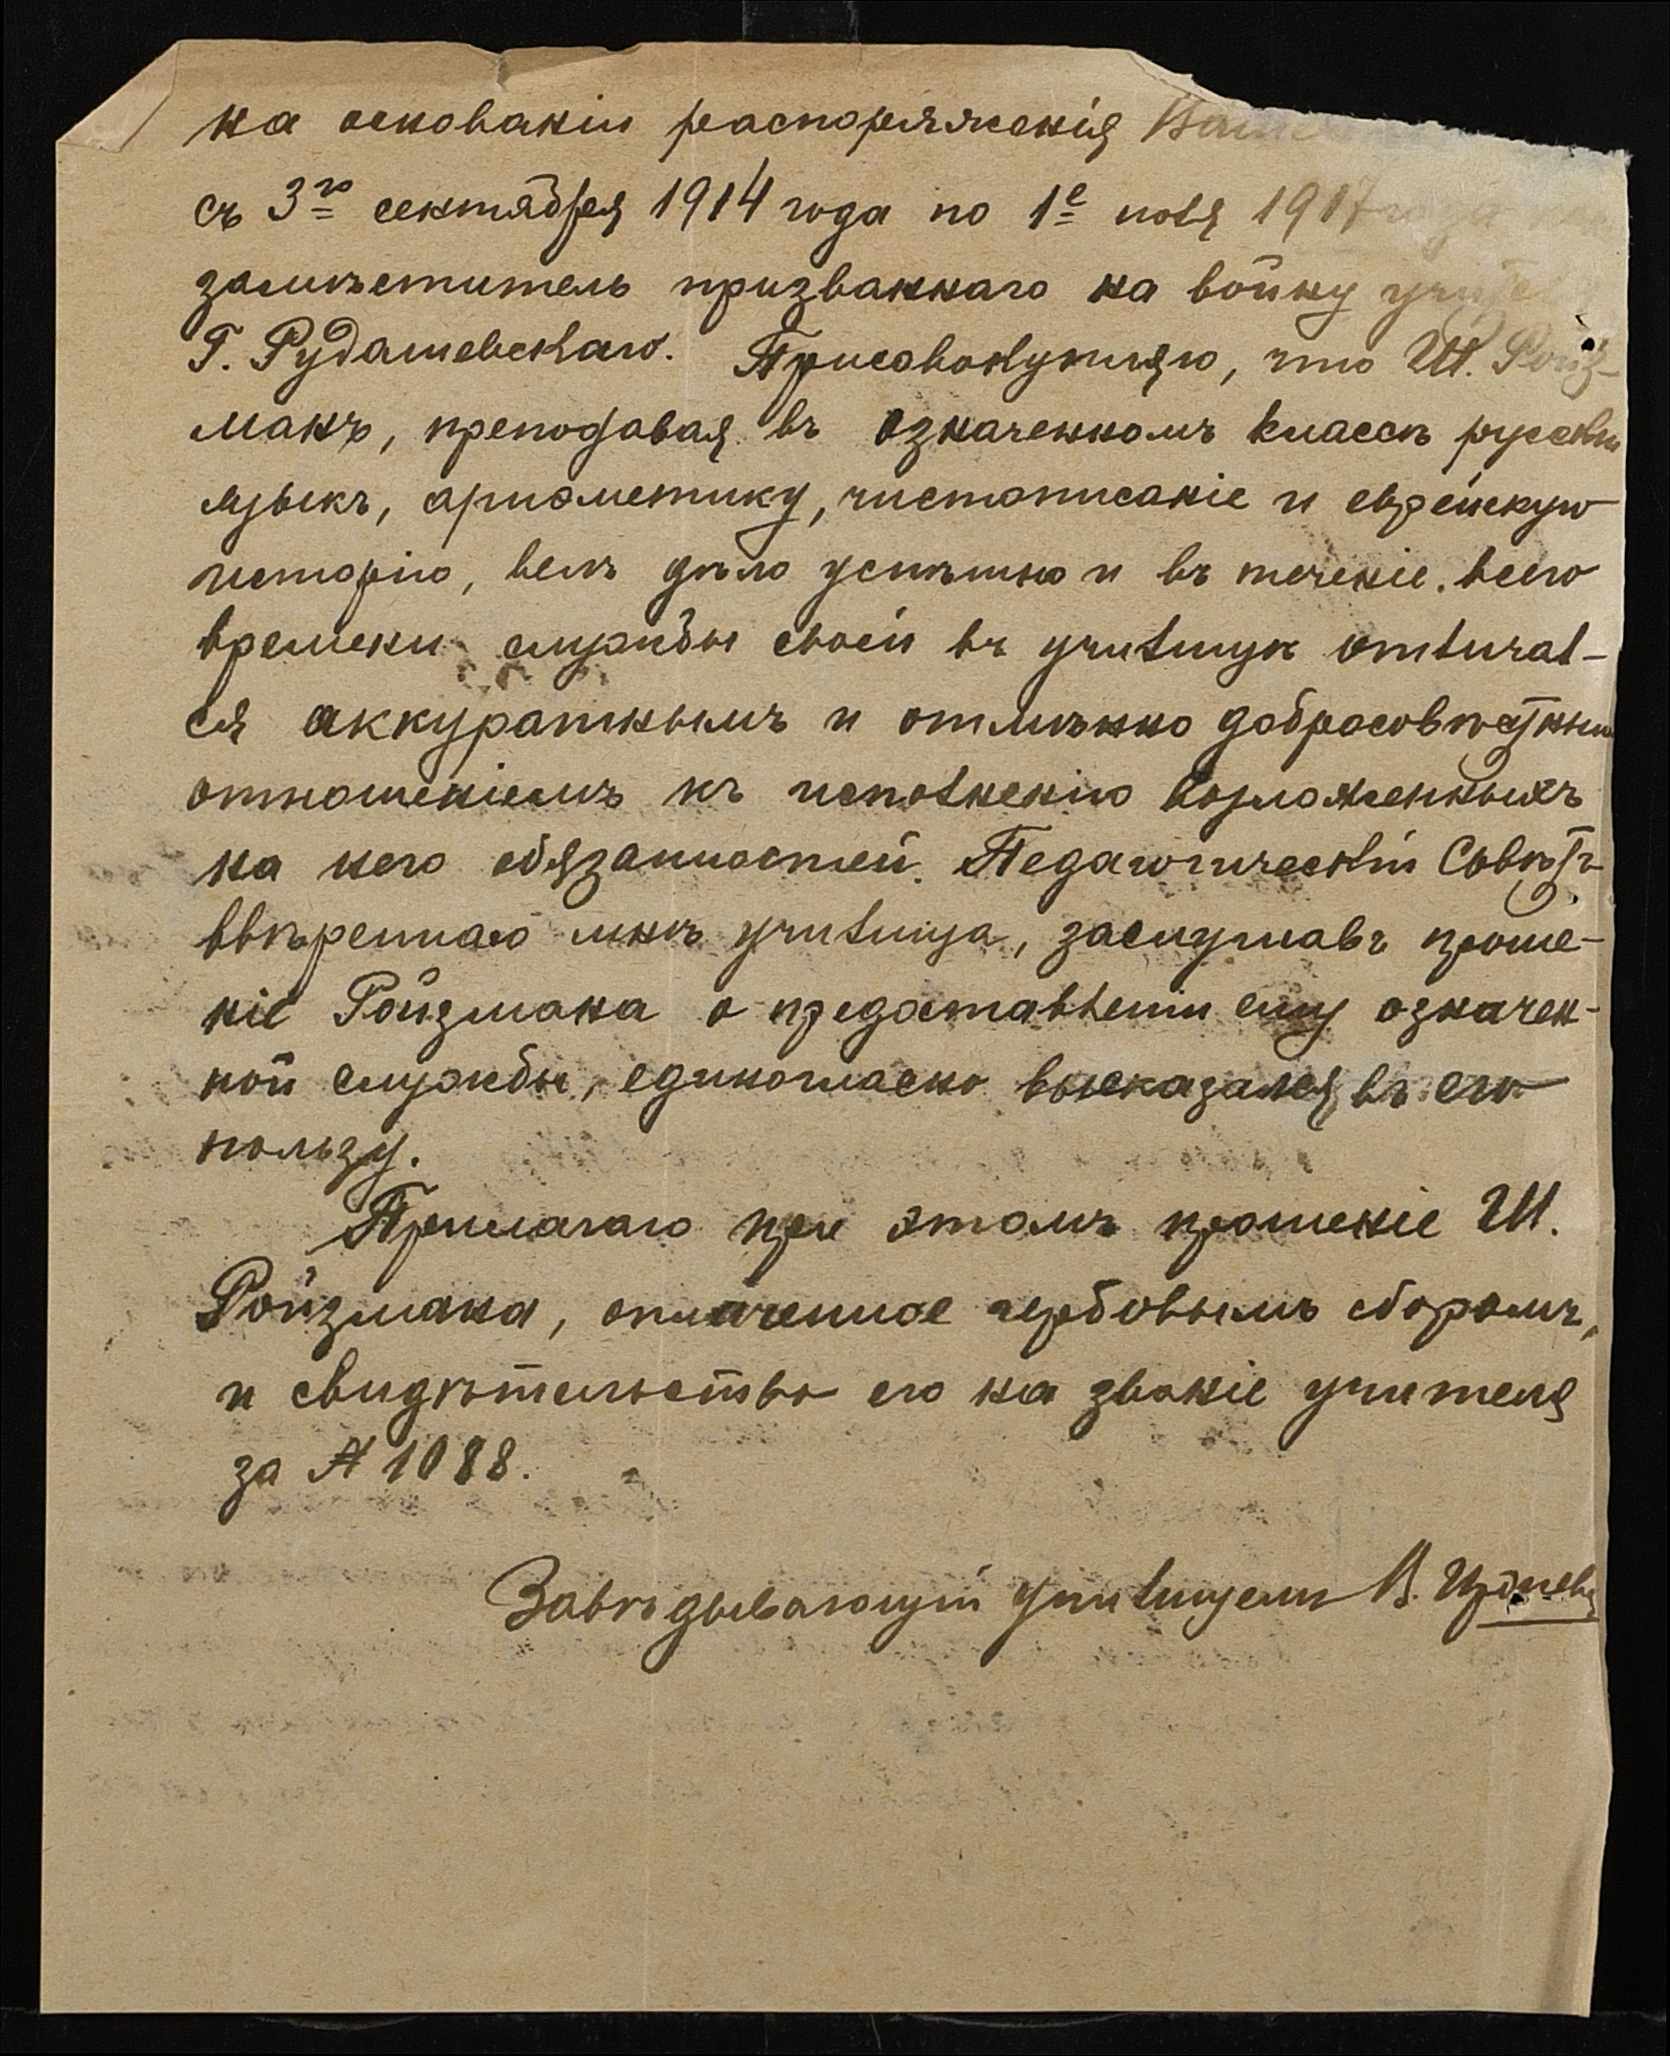 на основаніи распоряженія
съ 3го сентября 1914 года по 1е
замѣститель призваннаго на войну
Г. Рудашевскаго. Присовокупляю, что Ш.Ройз-
манъ, преподавая въ означенномъ классѣ русскій
языкъ, ариѳметику, чистописаніе и еврейскую
исторію, велъ дѣло успѣшно и въ теченіе всего
времени службы своей въ училищѣ отличал-
ся аккуратнымъ и отмѣнно добросовѣстнымъ
отношеніемъ къ исполненію возложенныхъ
на него обязанностей. Педагогическій Совѣтъ
ввѣреннаго мнѣ училища, заслушавъ проше-
ніе Ройзмана о предоставленіи ему означен-
ной службы, единогласно высказался въ его
пользу.
Прилагаю при этомъ прошеніе Ш.
Ройзмана, оплаченное гербовымъ сборомъ,
и свидѣтельство его на званіе учителя
за № 1088.
Завѣдывающій Училищемъ